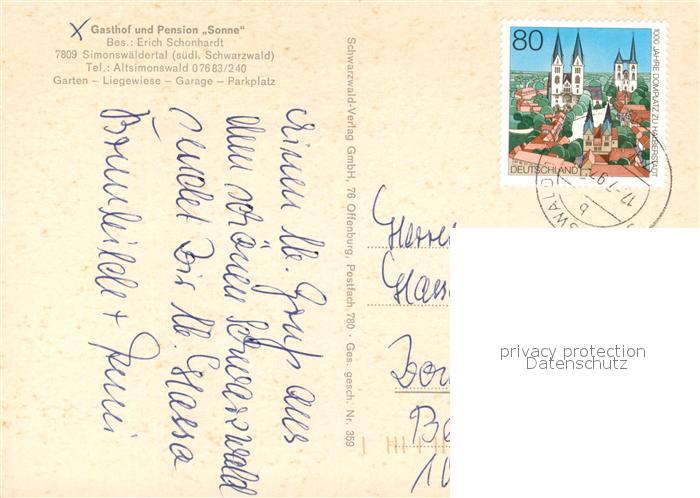 X Gasthof und Pension „Sonne"
Bes.: Erich Schonhardt
7809 Simonswäldertal (südl. Schwarzwald)
Tel.: Altsimonswald 07683/240
Garten – Liegewiese – Garage – Parkplatz
einen lb. Gruß aus
dem schönen Schwarzwald
sendet Dir lb. Hassa
Brunhilde +
Schwarzwald-Verlag GmbH, 76 Offenburg, Postfach 780 · Ges. gesch. Nr. 359
80
1000 JAHRE DOMPLATZ ZU HALBERSTADT
DEUTSCHLAND
17.-7.97
b
Herrn
Hass
10
privacy protection
Datenschutz